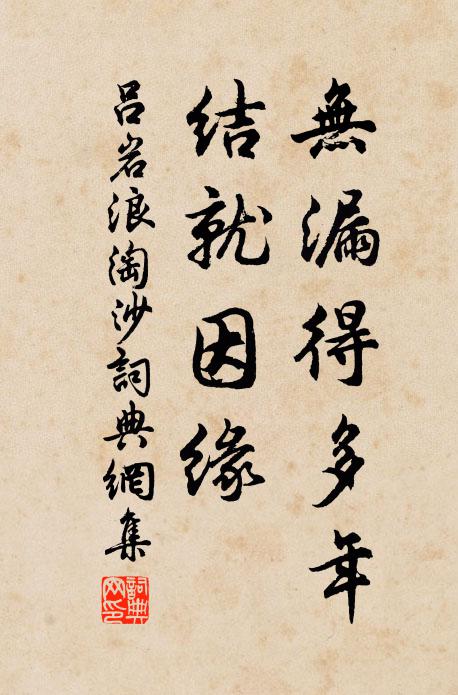 無漏得多年
結就因緣
吕岩浪淘沙詞典網集
詞典網印